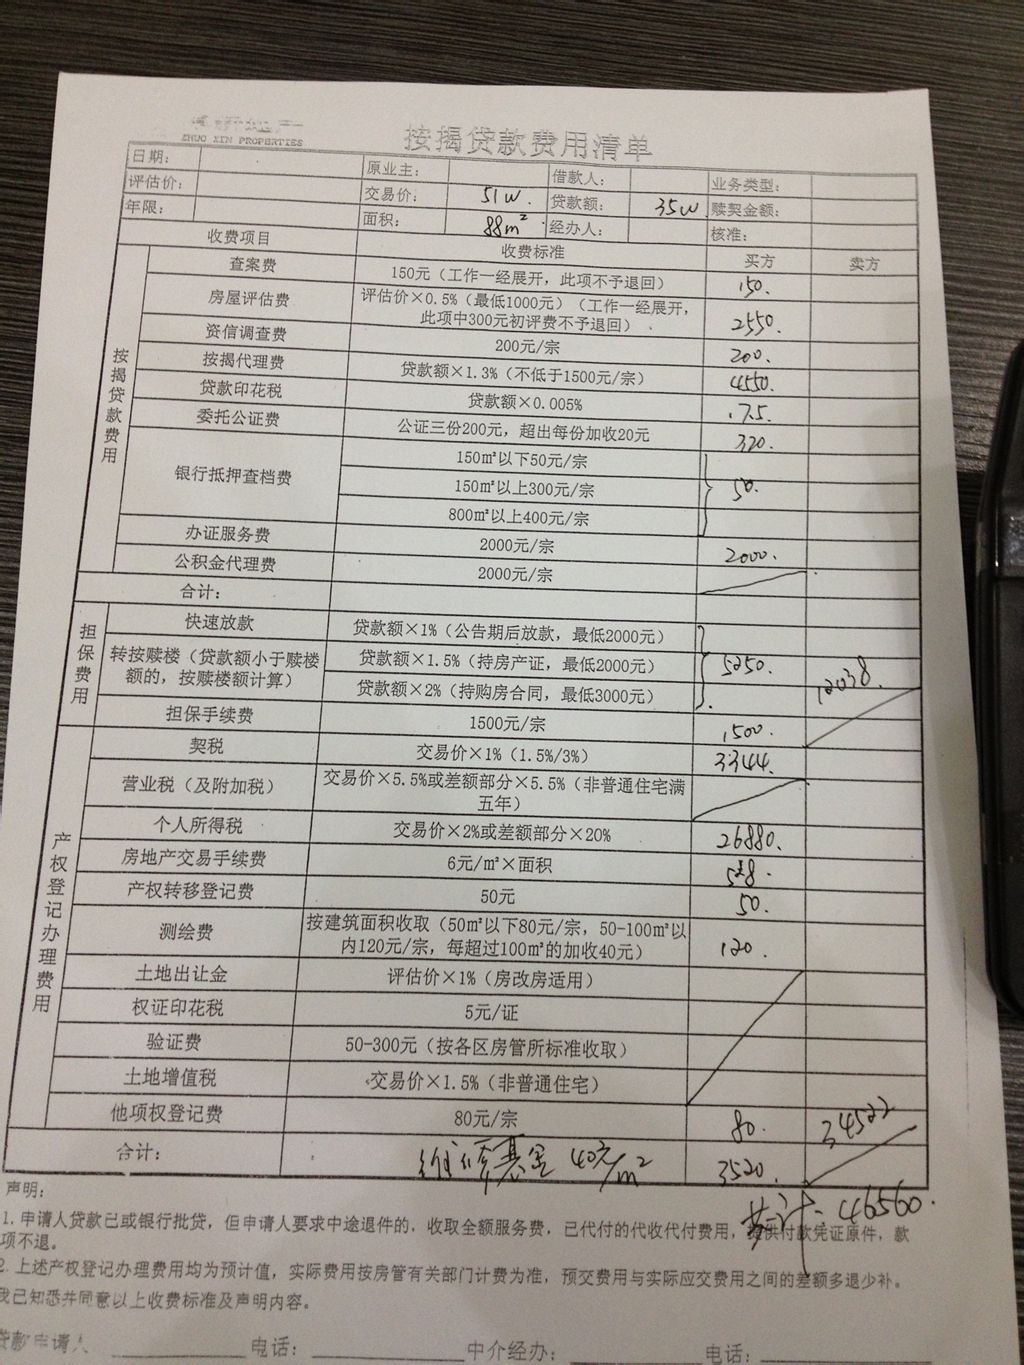 ZHUO XIN PROPERTIES
按揭贷款费用清单
日期： 原业主： 借款人： 业务类型：
评估价： 交易价： 51W. 贷款额： 35W. 赎契金额：
年限： 面积： 88m² 经办人： 核准：
收费项目 收费标准 买方 卖方
按揭贷款费用
查案费 150元（工作一经展开，此项不予退回） 150.
房屋评估费 评估价×0.5%（最低1000元）（工作一经展开，
此项中300元初评费不予退回） 2550.
资信调查费 200元/宗 200.
按揭代理费 贷款额×1.3%（不低于1500元/宗） 4550.
贷款印花税 贷款额×0.005% 17.5.
委托公证费 公证三份200元，超出每份加收20元 320.
银行抵押查档费 150㎡以下50元/宗
150㎡以上300元/宗 50.
800㎡以上400元/宗
办证服务费 2000元/宗 2000.
公积金代理费 2000元/宗
合计：
担保费用
快速放款 贷款额×1%（公告期后放款，最低2000元）
转按赎楼（贷款额小于赎楼
额的，按赎楼额计算） 贷款额×1.5%（持房产证，最低2000元） 5250. 12038.
贷款额×2%（持购房合同，最低3000元）
担保手续费 1500元/宗 1500.
产权登记办理费用
契税 交易价×1%（1.5%/3%） 3344.
营业税（及附加税） 交易价×5.5%或差额部分×5.5%（非普通住宅满
五年）
个人所得税 交易价×2%或差额部分×20% 26880.
房地产交易手续费 6元/㎡×面积 528.
产权转移登记费 50元 50.
测绘费 按建筑面积收取（50㎡以下80元/宗，50-100㎡以
内120元/宗，每超过100㎡的加收40元） 120.
土地出让金 评估价×1%（房改房适用）
权证印花税 5元/证
验证费 50-300元（按各区房管所标准收取）
土地增值税 交易价×1.5%（非普通住宅）
他项权登记费 80元/宗 80. 34522
合计： 维修基金 40元/m² 3520.
共计: 46560.
声明：
1. 申请人贷款已或银行批贷，但申请人要求中途退件的，收取全额服务费，已代付的代收代付费用，提供付款凭证原件，款
项不退。
2. 上述产权登记办理费用均为预计值，实际费用按房管有关部门计费为准，预交费用与实际应交费用之间的差额多退少补。
我已知悉并同意以上收费标准及声明内容。
贷款申请人 电话： 中介经办： 电话：